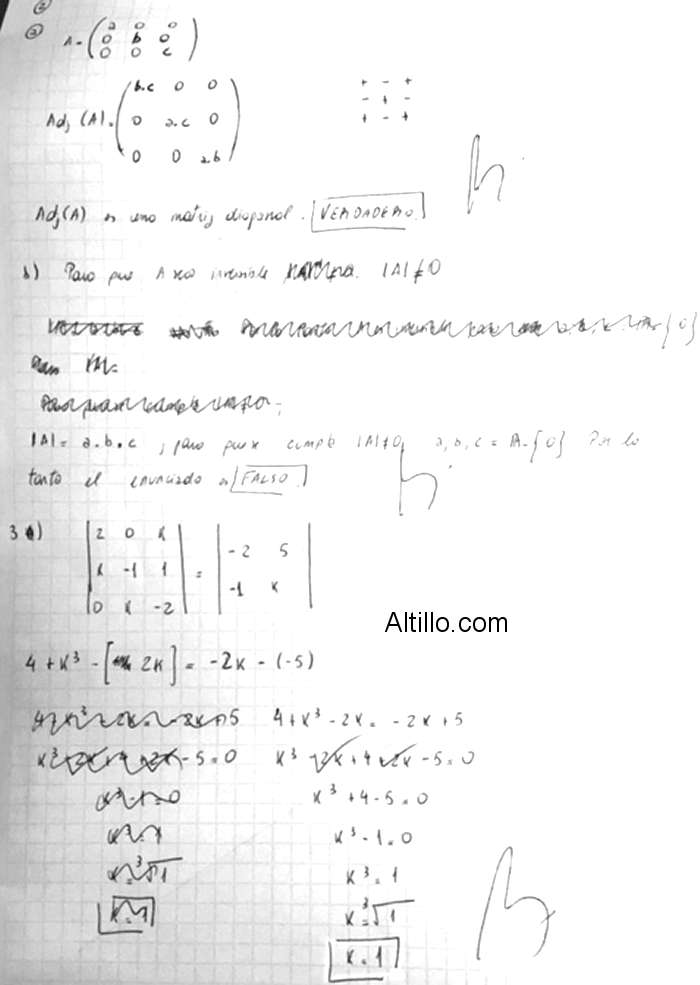 ②
ⓐ A = ( a 0 0
0 b 0
0 0 c )
+ - +
- + -
+ - +
Adj (A) = ( b.c 0 0
0 a.c 0
0 0 a.b )
Adj(A) es una matriz diagonal. VERDADERO.
b) Para que A sea inversible |A| ≠ 0
|A| = a.b.c ; para que se cumpla |A| ≠ 0 a, b, c = R - {0} Por lo
tanto el enunciado es FALSO.
3 a) | 2 0 K | = | -2 5 |
| K -1 1 | | -1 K |
| 0 K -2 |
Altillo.com
4 + K³ - [ 2K ] = -2K - (-5)
4 + K³ - 2K = -2K + 5
K³ - 2K + 4 + 2K - 5 = 0
K³ + 4 - 5 = 0
K³ - 1 = 0
K³ = 1
K = ³√1
K = 1